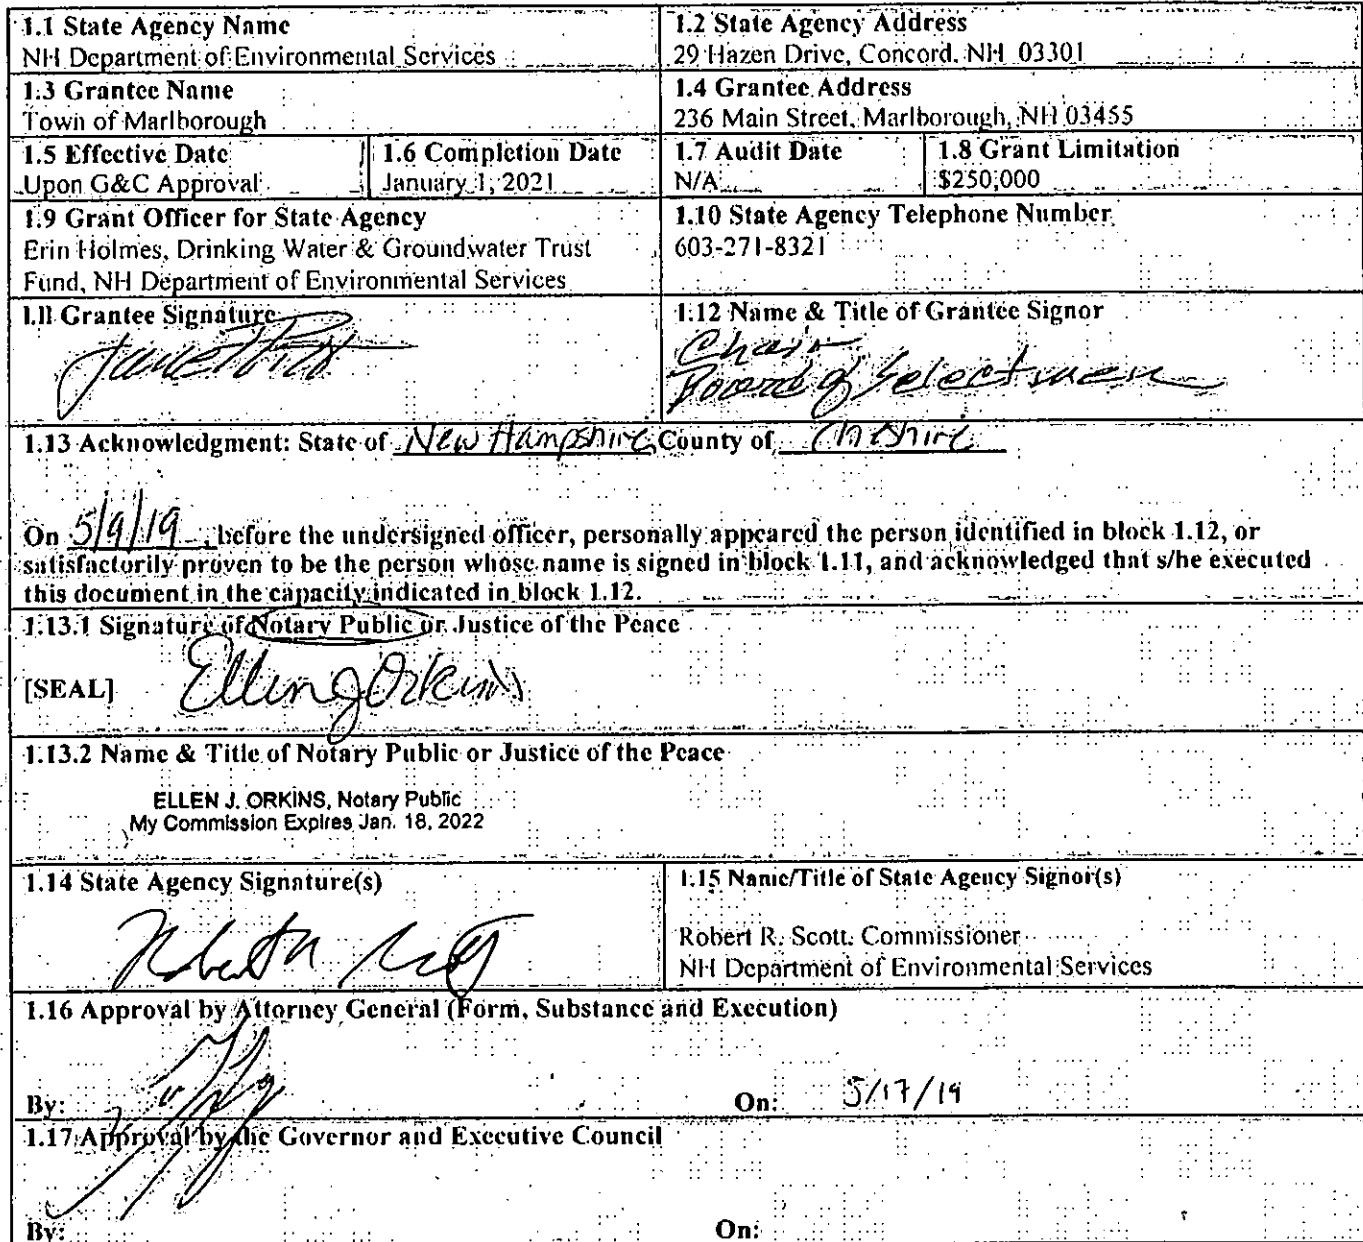 1.1 State Agency Name
NH Department of Environmental Services
1.2 State Agency Address
29 Hazen Drive, Concord, NH 03301
1.3 Grantee Name
Town of Marlborough
1.4 Grantee Address
236 Main Street, Marlborough, NH 03455
1.5 Effective Date
Upon G&C Approval
1.6 Completion Date
January 1, 2021
1.7 Audit Date
N/A
1.8 Grant Limitation
$250,000
1.9 Grant Officer for State Agency
Erin Holmes, Drinking Water & Groundwater Trust
Fund, NH Department of Environmental Services
1.10 State Agency Telephone Number
603-271-8321
1.11 Grantee Signature
1.12 Name & Title of Grantee Signor
Chair
Board of Selectmen
1.13 Acknowledgment: State of New Hampshire, County of Cheshire
On 5/9/19, before the undersigned officer, personally appeared the person identified in block 1.12, or
satisfactorily proven to be the person whose name is signed in block 1.11, and acknowledged that s/he executed
this document in the capacity indicated in block 1.12.
1.13.1 Signature of Notary Public or Justice of the Peace
[SEAL] Ellen J Orkins
1.13.2 Name & Title of Notary Public or Justice of the Peace
ELLEN J. ORKINS, Notary Public
My Commission Expires Jan. 18, 2022
1.14 State Agency Signature(s)
1.15 Name/Title of State Agency Signor(s)
Robert R. Scott, Commissioner
NH Department of Environmental Services
1.16 Approval by Attorney General (Form, Substance and Execution)
By: On: 5/17/19
1.17 Approval by the Governor and Executive Council
By: On: